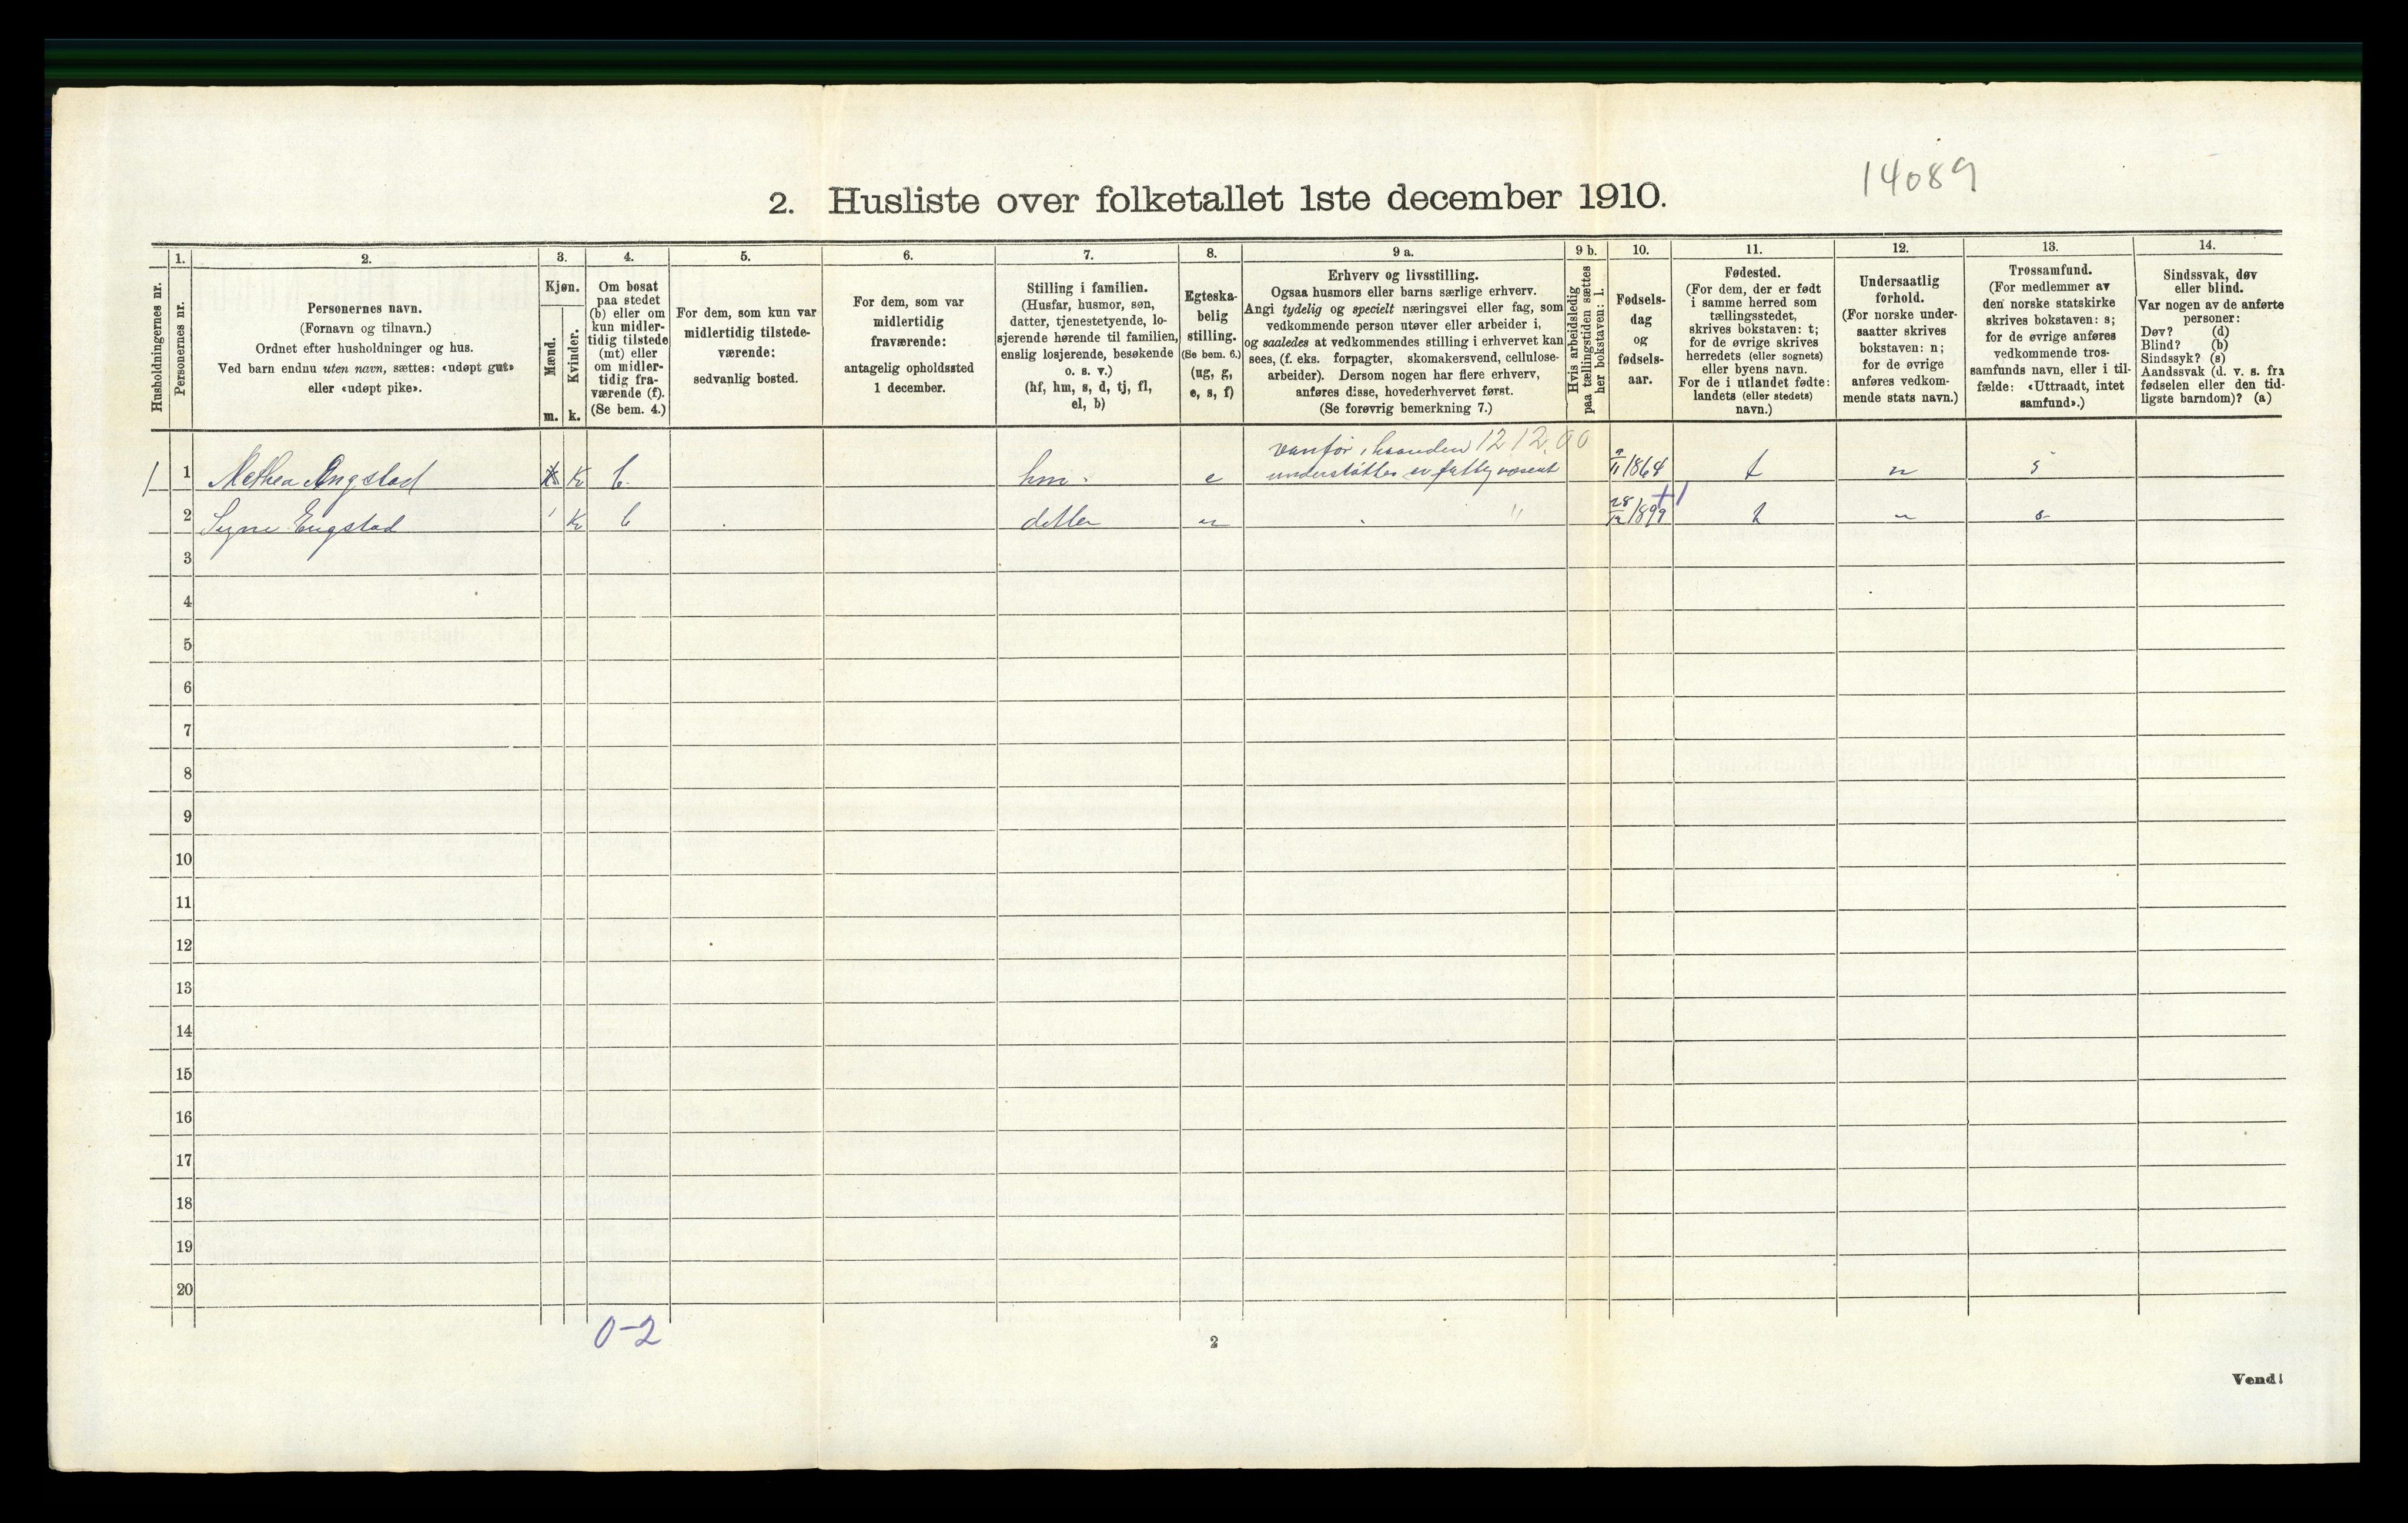 14089
2. Husliste over folketallet 1ste december 1910.
Husholdningernes nr.
1.
Personernes nr.
2.
Personernes navn.
(Fornavn og tilnavn.)
Ordnet efter husholdninger og hus.
Ved barn endnu uten navn, sættes: «udøpt gut»
eller «udøpt pike».
3.
Kjøn.
Mænd.
m.
Kvinder.
k.
4.
Om bosat
paa stedet
(b) eller om
kun midler-
tidig tilstede
(mt) eller
om midler-
tidig fra-
værende (f).
(Se bem. 4.)
5.
For dem, som kun var
midlertidig tilstede-
værende:
sedvanlig bosted.
6.
For dem, som var
midlertidig
fraværende:
antagelig opholdssted
1 december.
7.
Stilling i familien.
(Husfar, husmor, søn,
datter, tjenestetyende, lo-
sjerende hørende til familien,
enslig losjerende, besøkende
o. s. v.)
(hf, hm, s, d, tj, fl,
el, b)
8.
Egteska-
belig
stilling.
(Se bem. 6.)
(ug, g,
e, s, f)
9 a.
Erhverv og livsstilling.
Ogsaa husmors eller barns særlige erhverv.
Angi tydelig og specielt næringsvei eller fag, som
vedkommende person utøver eller arbeider i,
og saaledes at vedkommendes stilling i erhvervet kan
sees, (f. eks. forpagter, skomakersvend, cellulose-
arbeider). Dersom nogen har flere erhverv,
anføres disse, hovederhvervet først.
(Se forøvrig bemerkning 7.)
9 b.
Hvis arbeidsledig
paa tællingstiden sættes
her bokstaven: l.
10.
Fødsels-
dag
og
fødsels-
aar.
11.
Fødested.
(For dem, der er født
i samme herred som
tællingsstedet,
skrives bokstaven: t;
for de øvrige skrives
herredets (eller sognets)
eller byens navn.
For de i utlandet fødte:
landets (eller stedets)
navn.)
12.
Undersaatlig
forhold.
(For norske under-
saatter skrives
bokstaven: n;
for de øvrige
anføres vedkom-
mende stats navn.)
13.
Trossamfund.
(For medlemmer av
den norske statskirke
skrives bokstaven: s;
for de øvrige anføres
vedkommende tros-
samfunds navn, eller i til-
fælde: «Uttraadt, intet
samfund».)
14.
Sindssvak, døv
eller blind.
Var nogen av de anførte
personer:
Døv? (d)
Blind? (b)
Sindssyk? (s)
Aandssvak (d. v. s. fra
fødselen eller den tid-
ligste barndom)? (a)
vanfør i haanden 12 12.00
1 1 Methea Engstad K b. hm. e understøttes av fattigvæsent 9/11 1864 t n s
2 Signe Engstad K b detter " 28/12 1899 t s
+1
3
4
5
6
7
8
9
10
11
12
13
14
15
16
17
18
19
20
0-2
2
Vend!